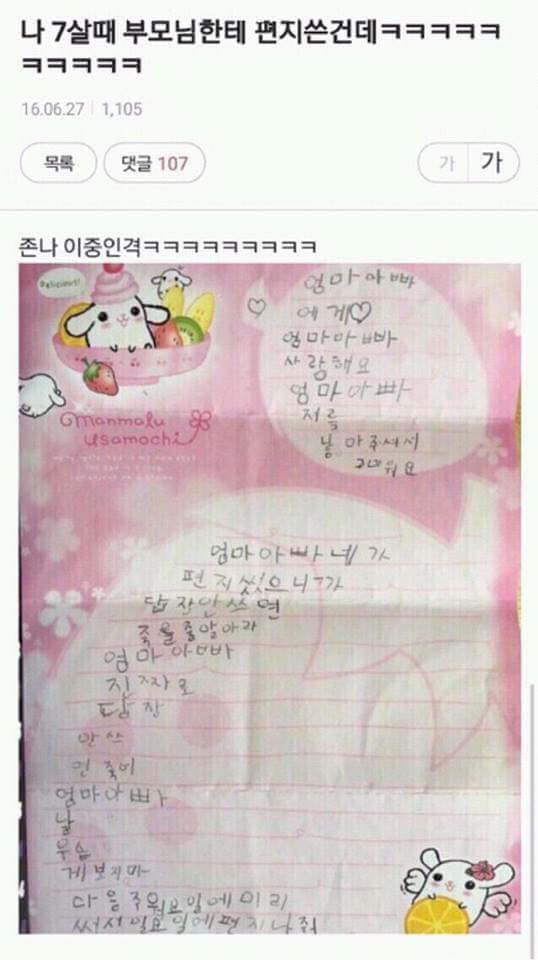 나 7살때 부모님한테 편지쓴건데ㅋㅋㅋㅋㅋ
ㅋㅋㅋㅋㅋ
16.06.27 | 1,105
목록
댓글 107
가
가
존나 이중인격ㅋㅋㅋㅋㅋㅋㅋㅋㅋ
Delicious!
엄마아빠
에게♡
엄마아빠
사랑해요
엄마아빠
저를
낳아주셔서
고마워요
Manmalu
Usamochi
엄마아빠네가
편지썼으니까
답장안쓰면
죽을줄알아라
엄마아빠
진짜로
답장
안쓰
면죽어
엄마아빠
날
우습
게보지마
다음주월요일에미리
써서일요일에편지나줘